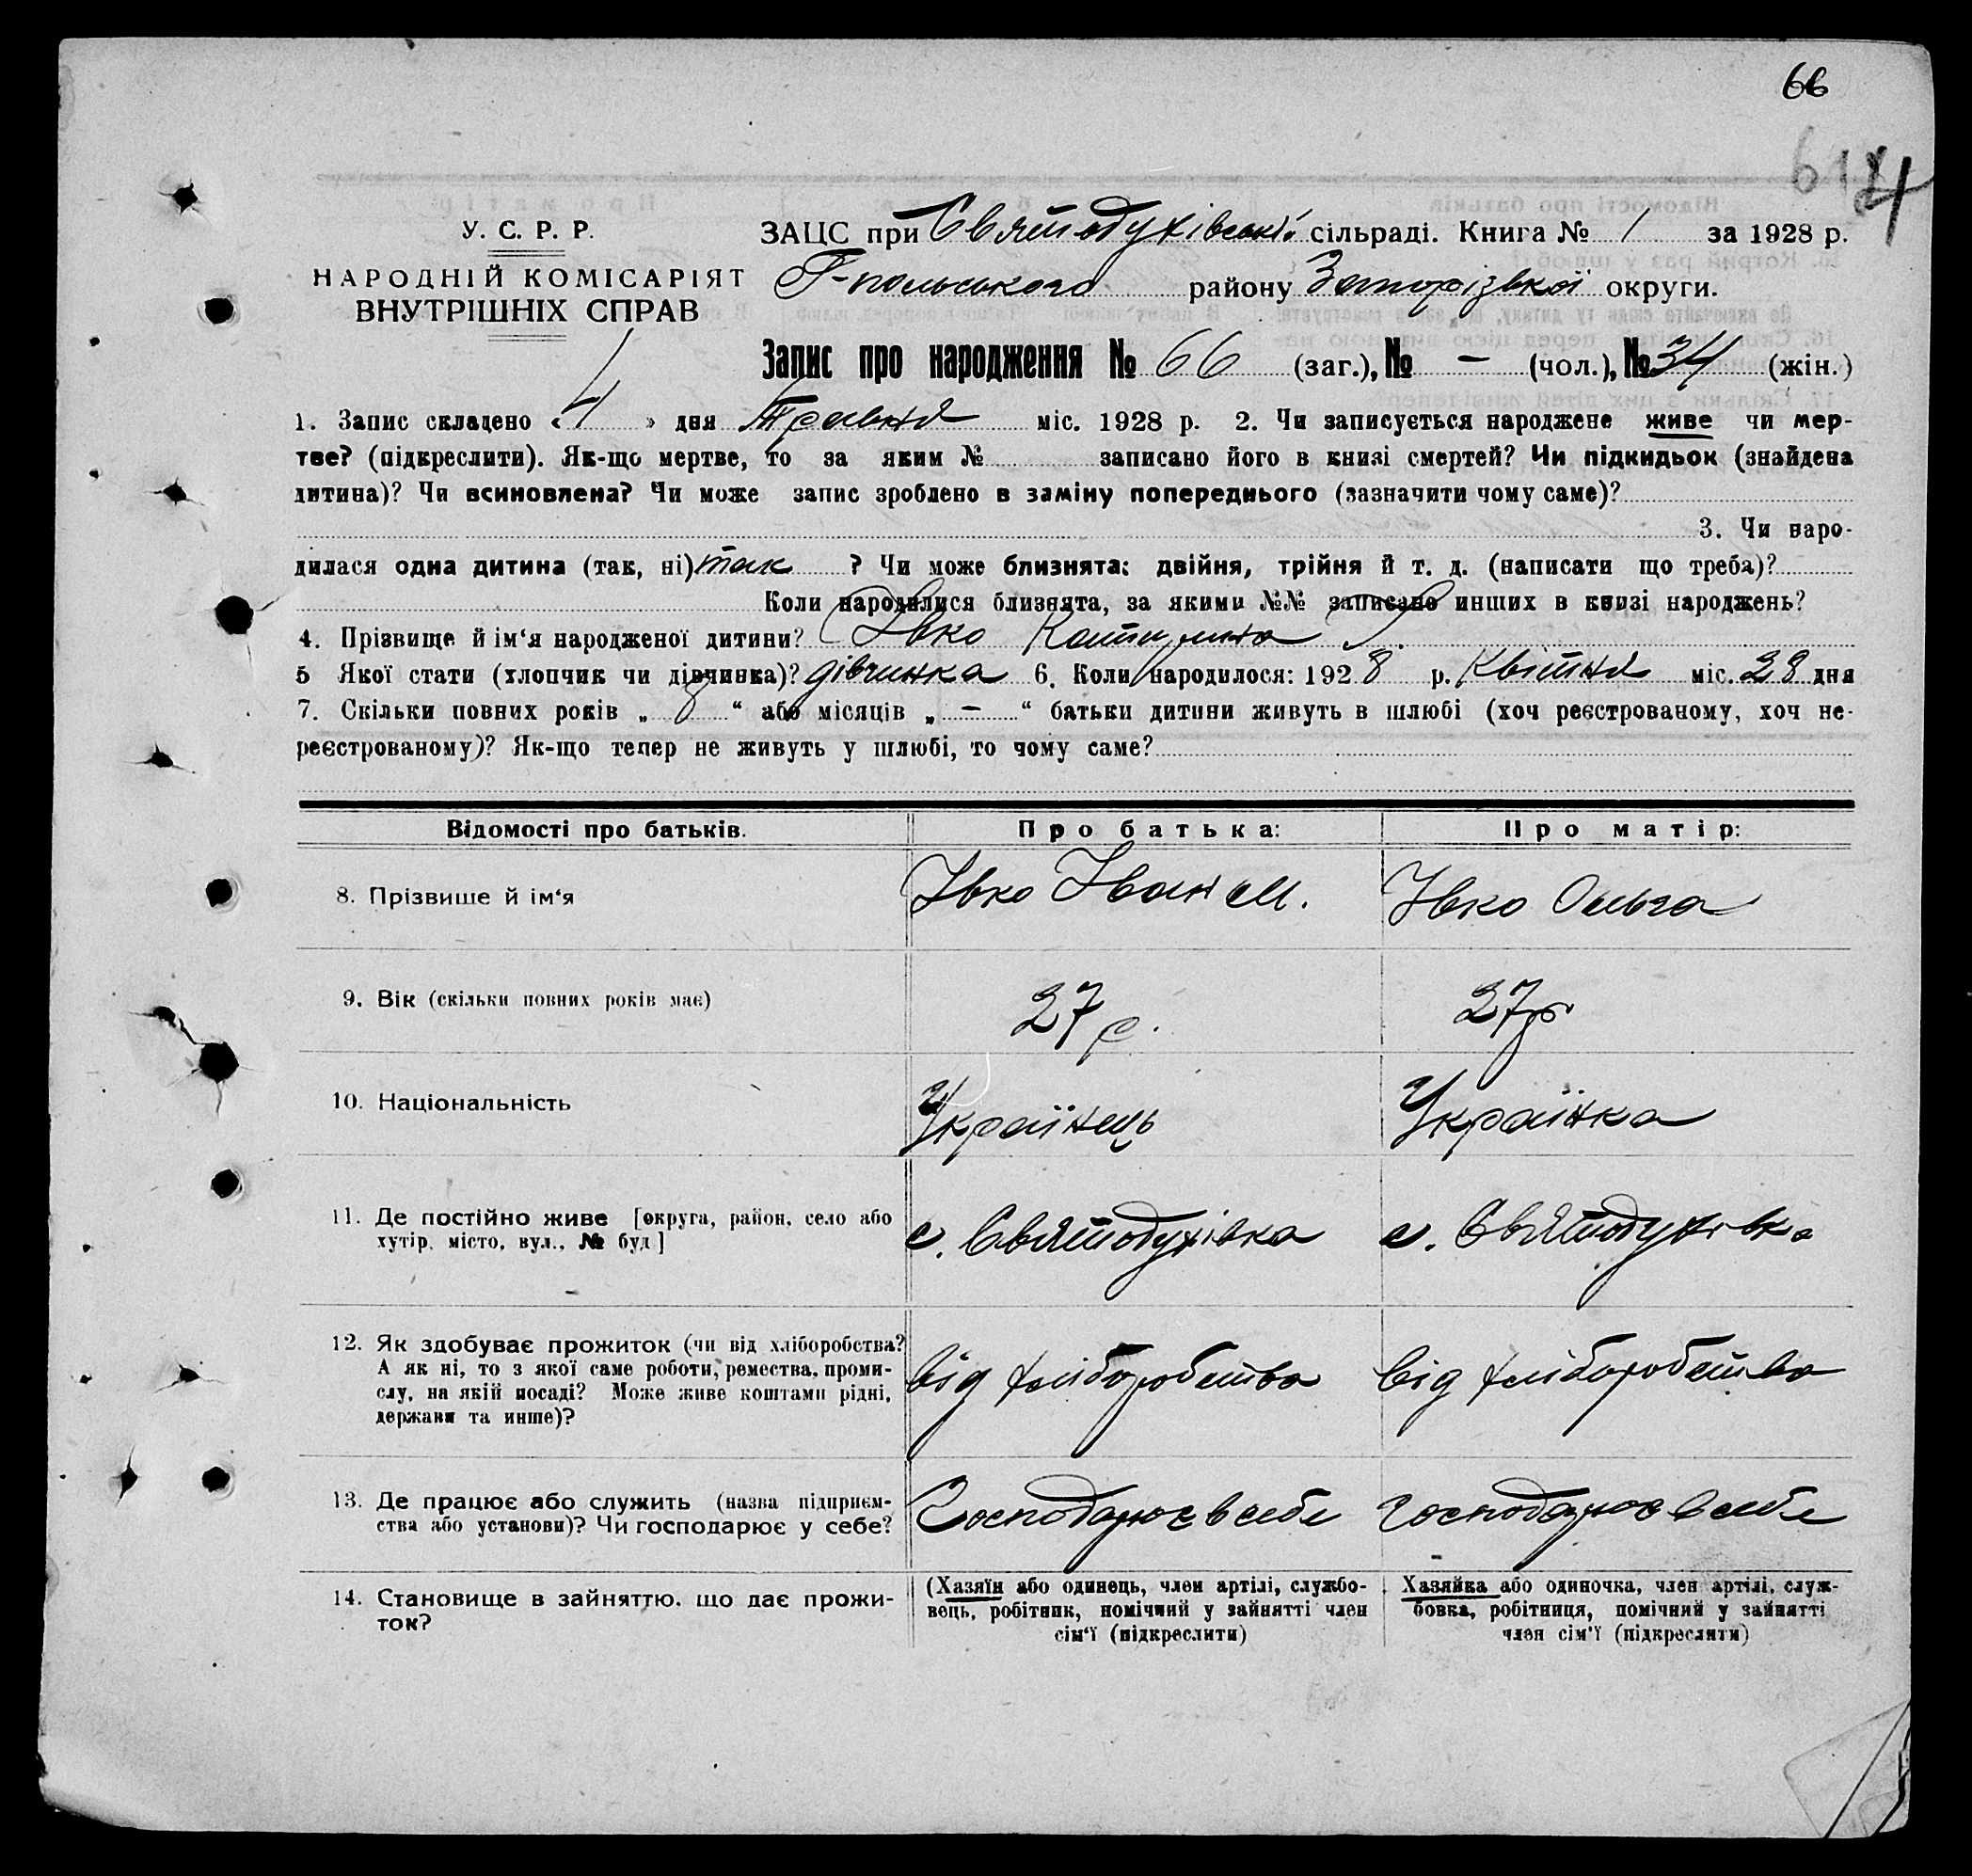 66
614
У. С. Р. Р.
НАРОДНІЙ КОМІСАРІЯТ
ВНУТРІШНІХ СПРАВ
ЗАЦС при Святодухівські́й сільраді. Книга № 1 за 1928 р.
Г-польського району Запорізької округи.
Запис про народження № 66 (заг.), № — (чол.), № 34 (жін.)
1. Запис складено «4» дня Травня міс. 1928 р. 2. Чи записується народжене живе чи мер-
тве? (підкреслити). Як-що мертве, то за яким № записано його в книзі смертей? Чи підкидьок (знайдена
дитина)? Чи всиновлена? Чи може запис зроблено в заміну попереднього (зазначити чому саме)?
3. Чи наро-
дилася одна дитина (так, ні) так ? Чи може близнята: двійня, трійня й т. д. (написати що треба)?
Коли народилися близнята, за якими №№ записано инших в книзі народжень?
4. Прізвище й ім‘я народженої дитини? Івко Катирина
5 Якої стати (хлопчик чи дівчинка)? дівчинка 6. Коли народилося: 1928 р. Квітня міс. 28 дня
7. Скільки повних років „ 8 “ або місяців „ — “ батьки дитини живуть в шлюбі (хоч реєстрованому, хоч не-
реєстрованому)? Як-що тепер не живуть у шлюбі, то чому саме?
Відомості про батьків. Про батька: Про матір:
8. Прізвише й ім‘я Івко Іван М. Івко Ольга
9. Вік (скільки повних років має) 27 р. 27 р
10. Національність Українець Українка
11. Де постійно живе [округа, район, село або
хутір, місто, вул., № буд] с. Святодухівка с. Святодухівка
12. Як здобуває прожиток (чи від хліборобства?
А як ні, то з якої саме роботи, ремества, проми-
слу, на якій посаді? Може живе коштами рідні,
держави та инше)? від хліборобства від хліборобства
13. Де працює або служить (назва підприєм-
ства або установи)? Чи господарює у себе? Господарює в себе господарює в себе
14. Становище в зайняттю, що дає прожи-
ток?
(Хазяїн або одинець, член артілі, службо-
вець, робітник, помічний у зайнятті член
сім‘ї (підкреслити)
Хазяйка або одиночка, член артілі, служ-
бовка, робітниця, помічний у зайнятті
член сім‘ї (підкреслити)